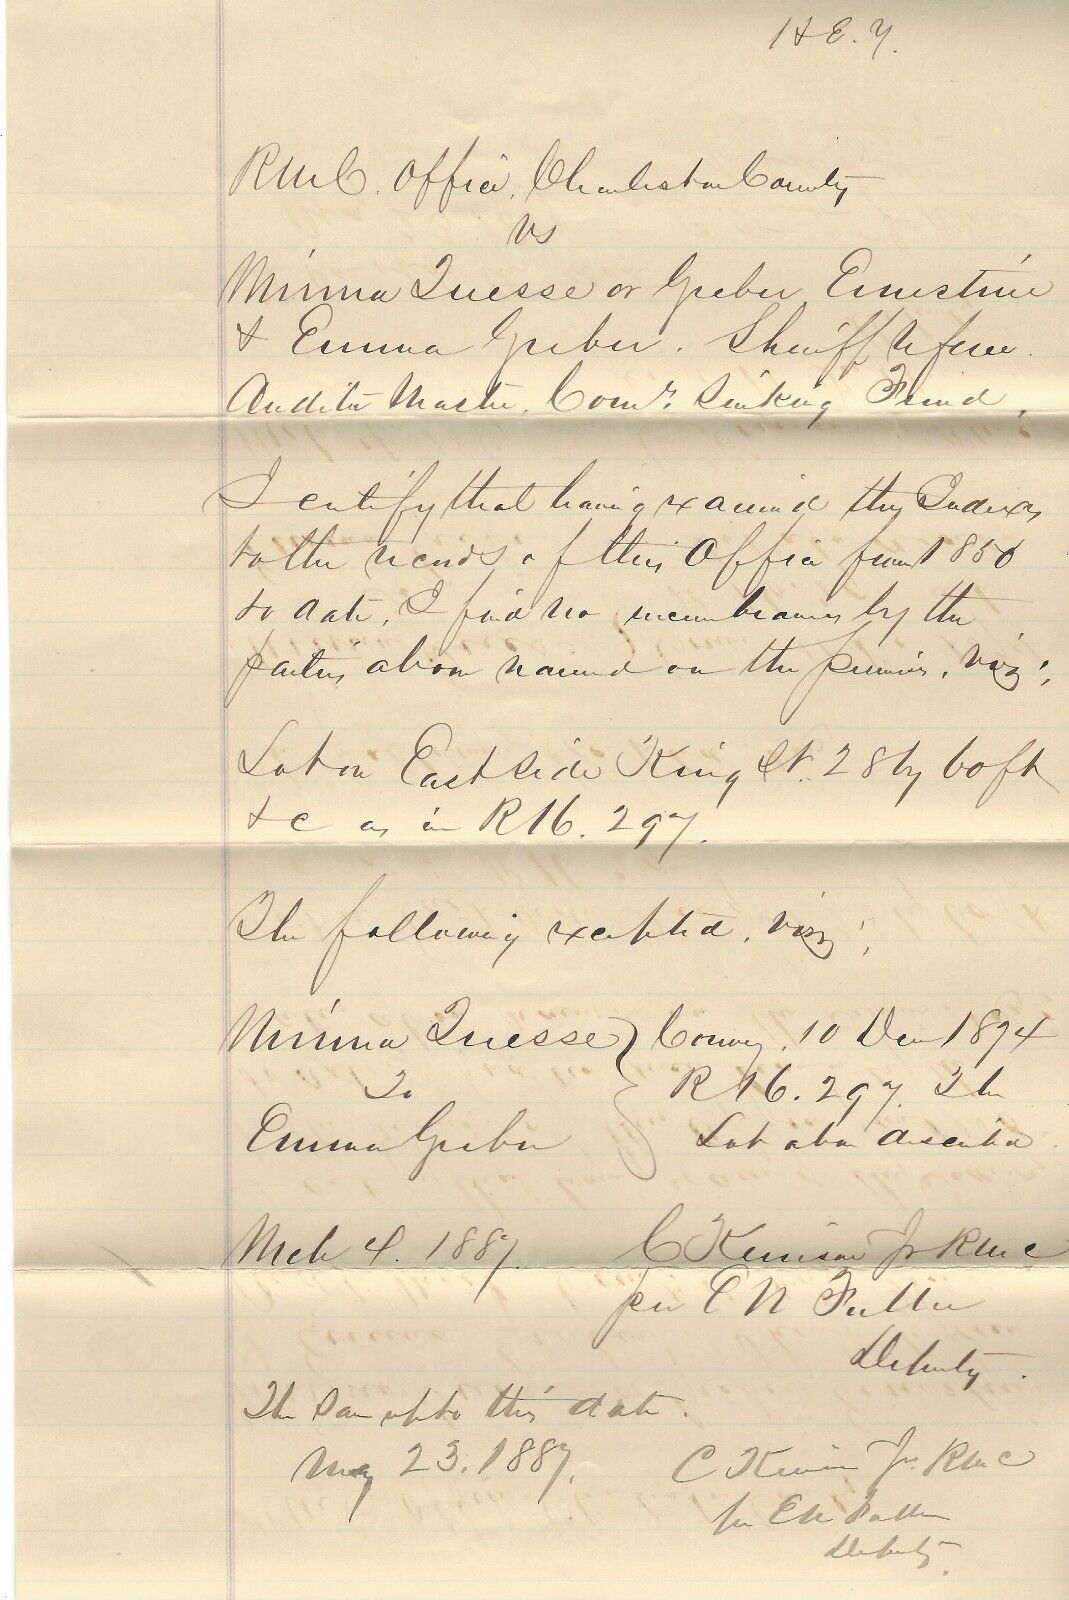 H E. Y.
R M C. Office, Charleston County
vs
Minna Quesse or Greber Ernestine
& Emma Greber. Sheriff, Referee.
Auditor Master, Comr. Sinking Fund,
I certify that having examined the Indexes
to the records of this Office from 1850
to date, I find no incumbrances by the
parties above named on the premises, viz;
Lot on East side King St. 28 by 60 ft
&c as in R 16. 297.
The following excepted, viz;
Minna Quesse } Convey. 10 Dec 1874
To R 16. 297. The
Emma Greber Lot above described.
Mch 4. 1887. C Kerrison Jr R M C
per E N Fuller
Deputy.
The same up to this date.
May 23. 1887. C Kerrison Jr. R M C
per E N Fuller
Deputy.